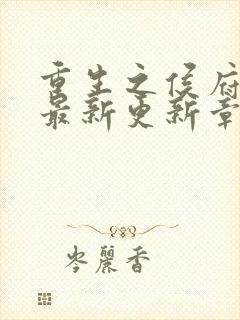 重生之侯府
最新更新章
岑麗香